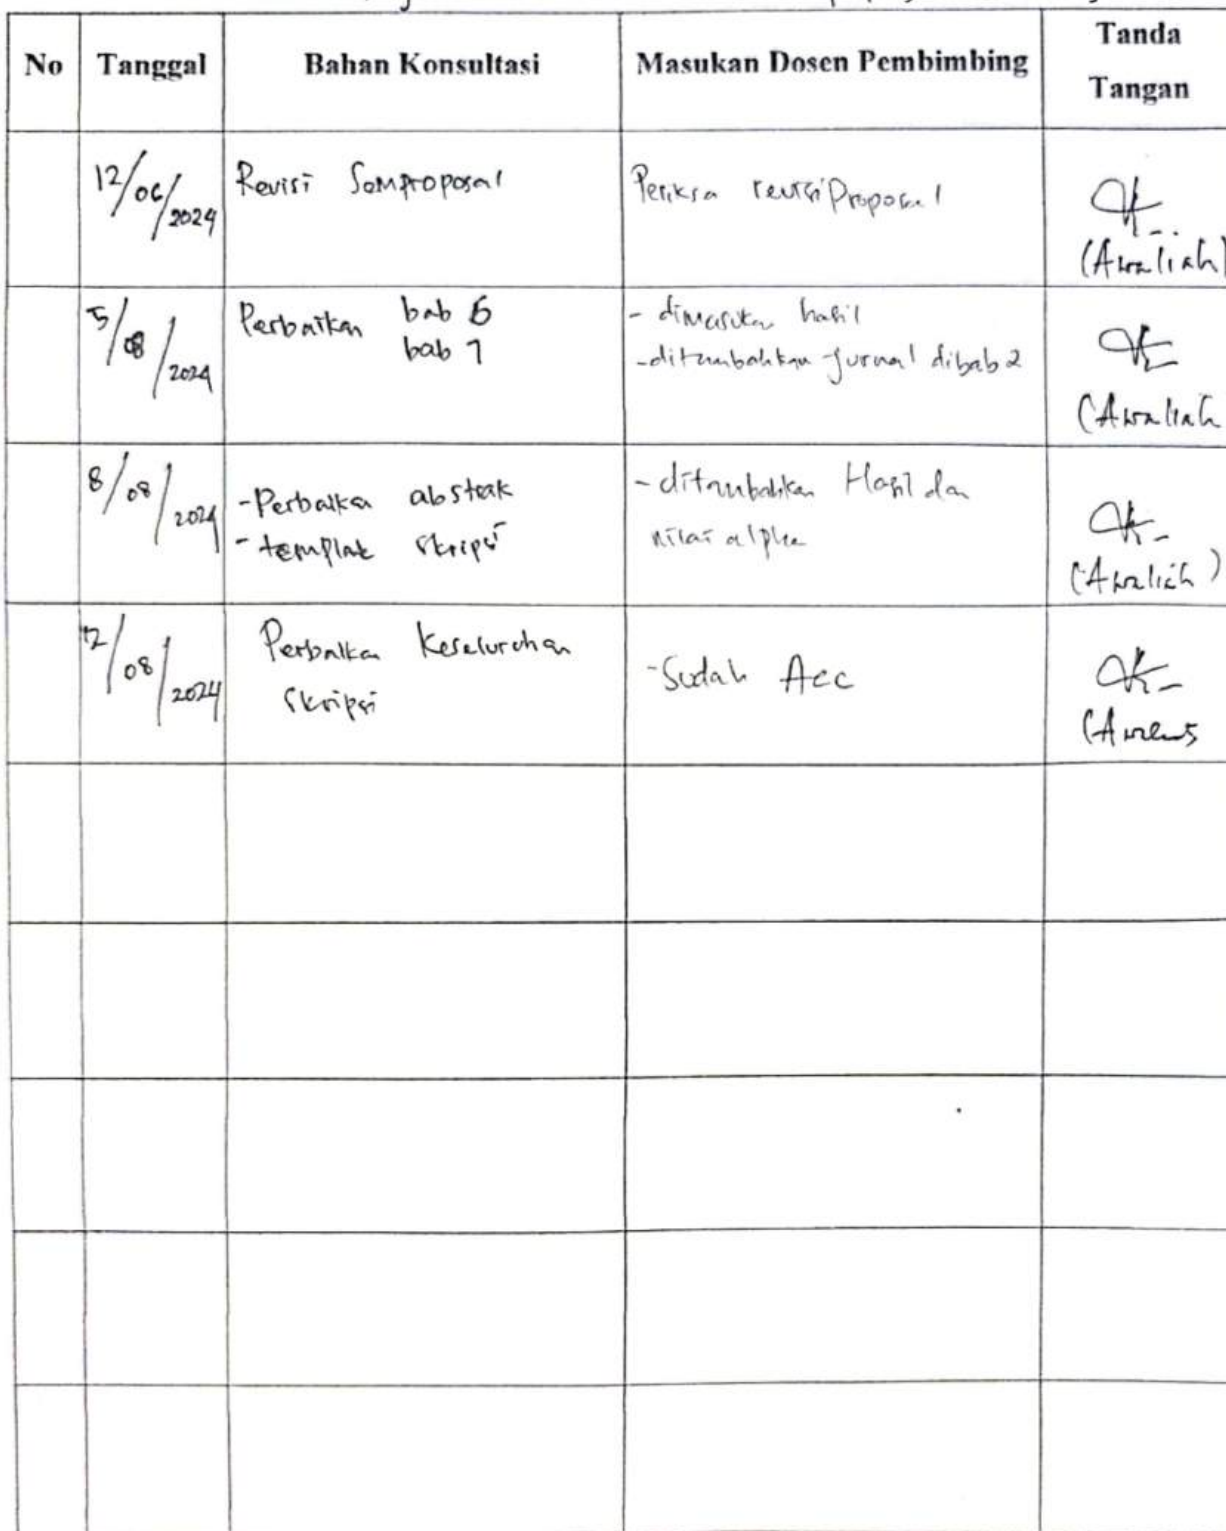 No Tanggal Bahan Konsultasi Masukan Dosen Pembimbing Tanda Tangan
12/06/2024 Revisi Semproposal Periksa revisi Proposal
(Awaliah)
5/08/2024 Perbaikan bab 6 - dimasukan hasil
bab 7 - ditambahkan Jurnal dibab 2
(Awaliah
8/08/2024 - Perbaikan abstrak - ditambahkan Hasil dan
- templat skripsi nilai alpha
(Awaliah)
12/08/2024 Perbaikan Keseluruhan
skripsi - Sudah Acc